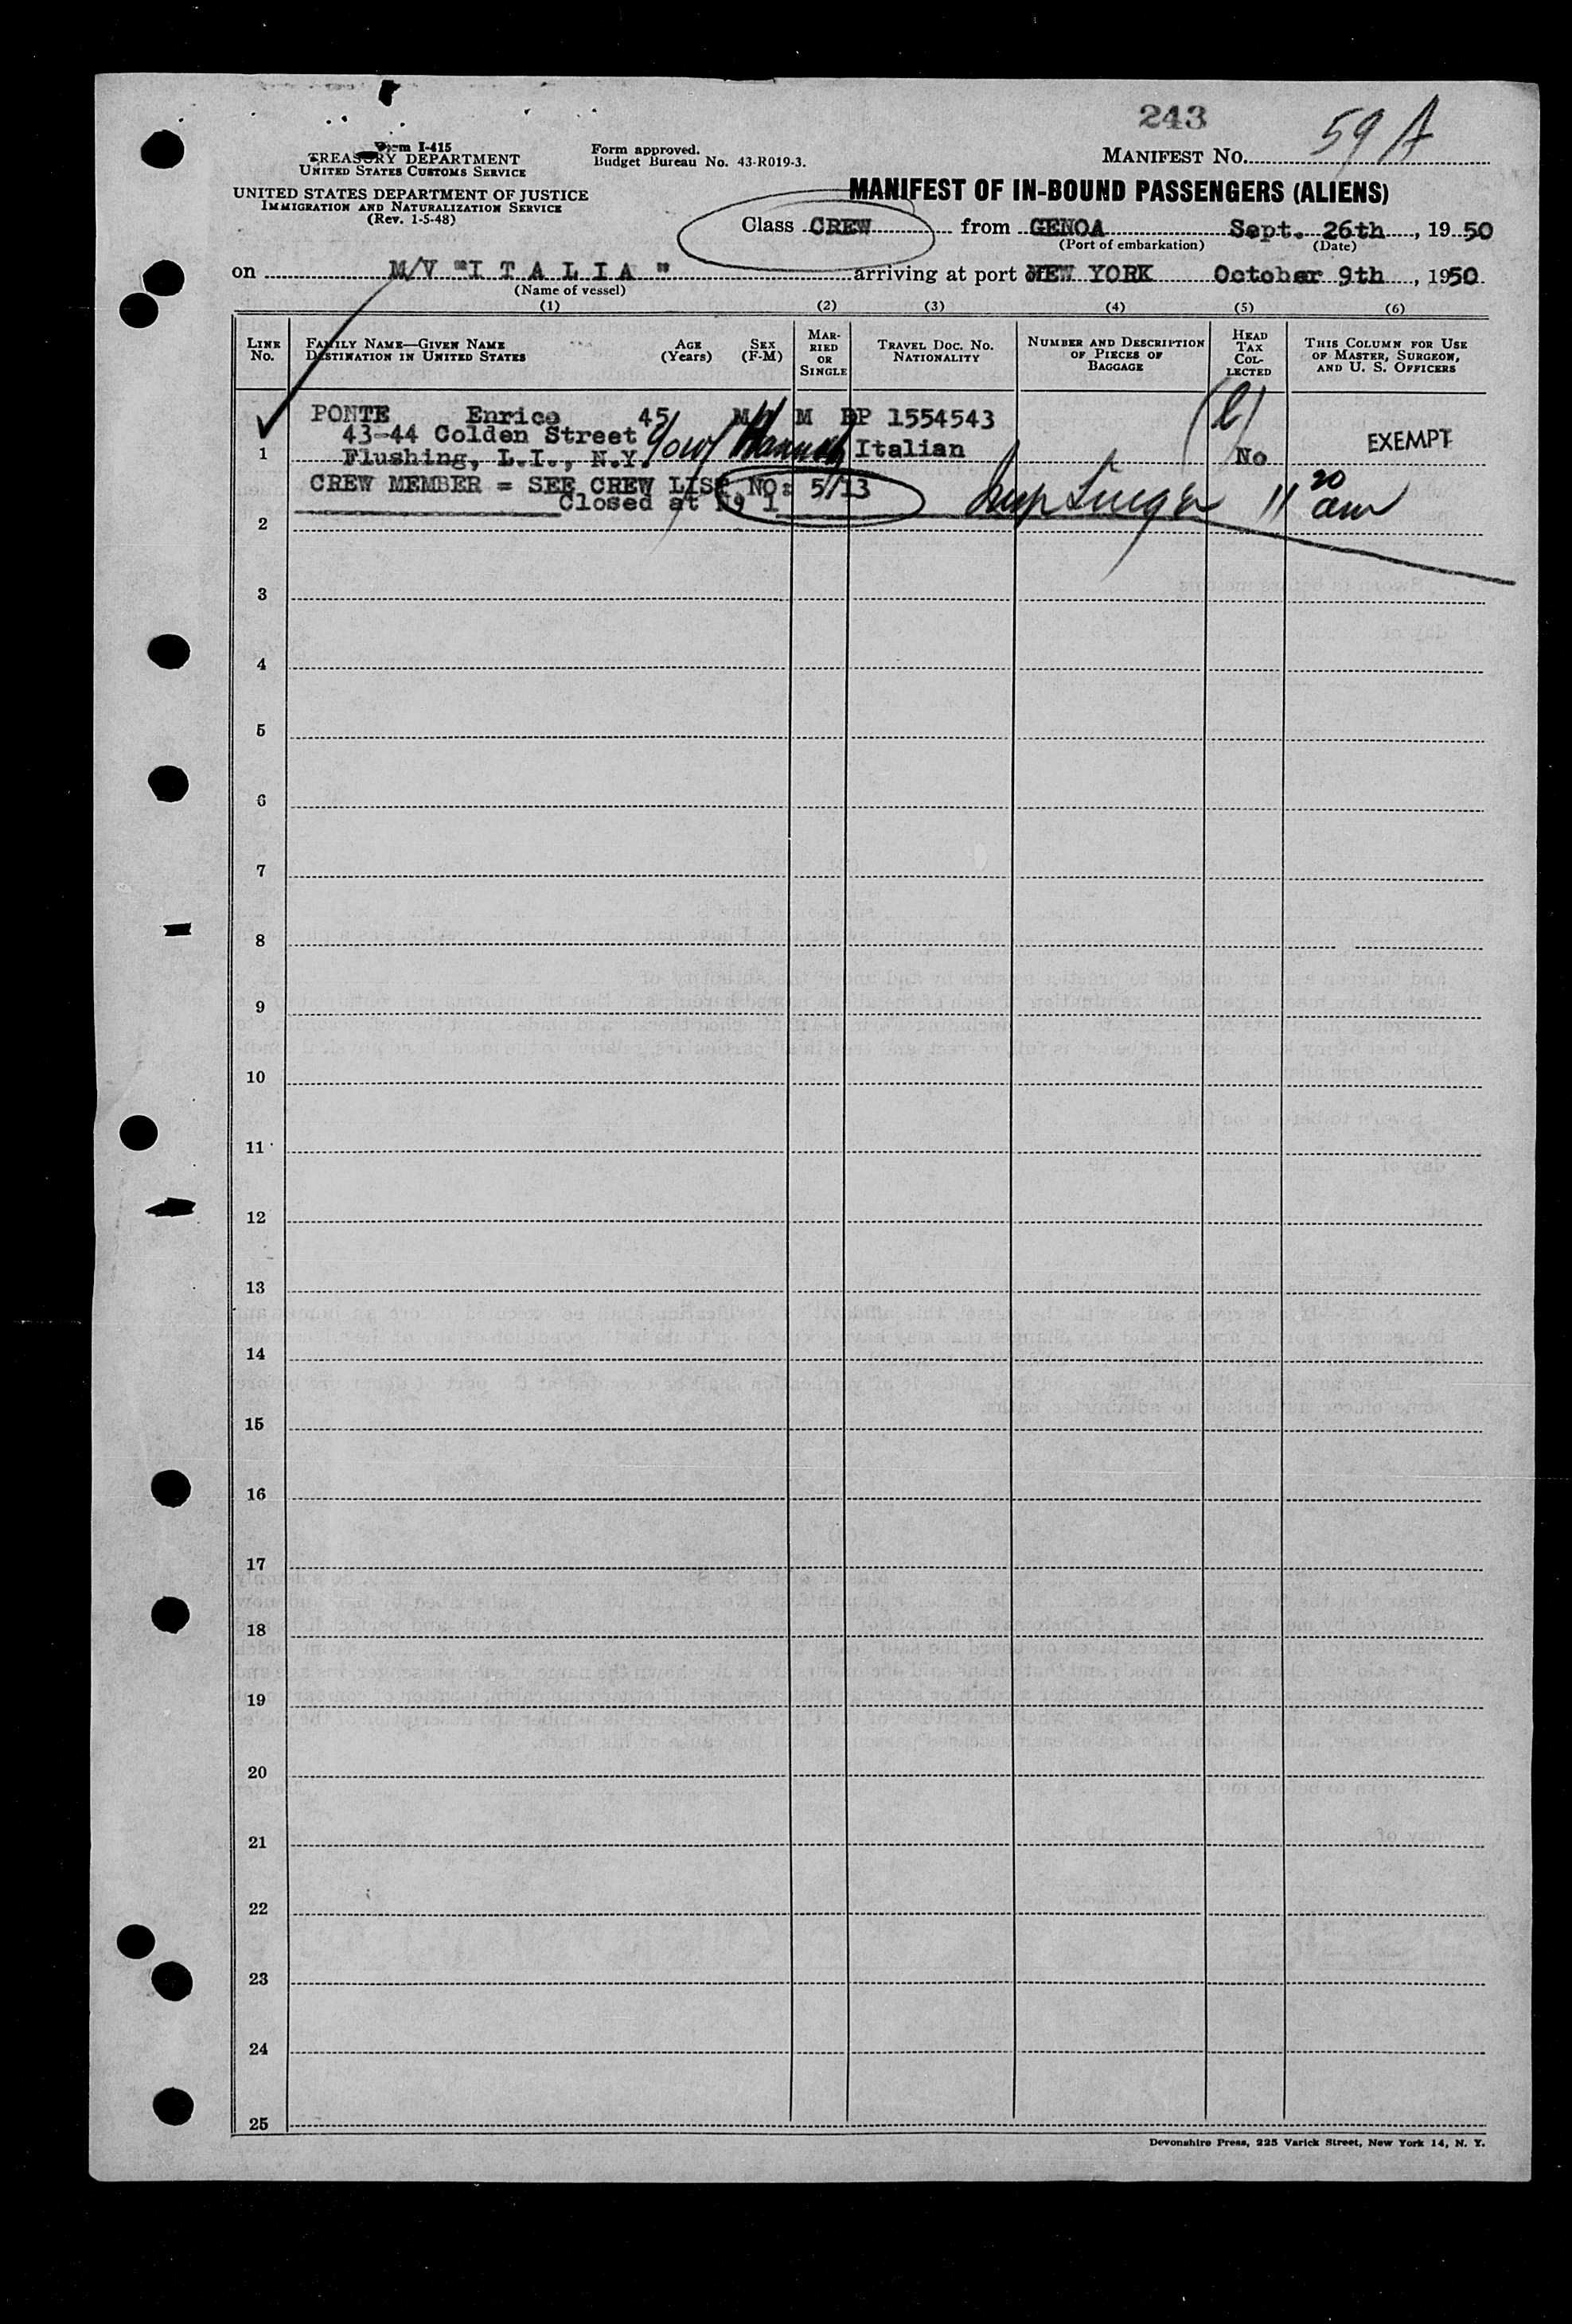 243
59 A
Form I-415
TREASURY DEPARTMENT
UNITED STATES CUSTOMS SERVICE
UNITED STATES DEPARTMENT OF JUSTICE
IMMIGRATION AND NATURALIZATION SERVICE
(Rev. 1-5-48)
Form approved.
Budget Bureau No. 43-R019-3.
MANIFEST NO.
MANIFEST OF IN-BOUND PASSENGERS (ALIENS)
Class CREW from GENOA Sept. 26th, 19 50
(Port of embarkation) (Date)
on M/V "I T A L I A" arriving at port of NEW YORK October 9th, 1950
(Name of vessel)
(1) (2) (3) (4) (5) (6)
LINE No.
FAMILY NAME—GIVEN NAME
DESTINATION IN UNITED STATES
AGE (Years)
SEX (F-M)
MARRIED OR SINGLE
TRAVEL DOC. NO.
NATIONALITY
NUMBER AND DESCRIPTION OF PIECES OF BAGGAGE
HEAD TAX COLLECTED
THIS COLUMN FOR USE OF MASTER, SURGEON, AND U. S. OFFICERS
PONTE Enrico 45 M M RP 1554543
43-44 Golden Street
1 Flushing, L.I., N.Y. Italian No EXEMPT
CREW MEMBER = SEE CREW LIST NO: 5/13
Closed at N° 1
11 20 am
2
3
4
5
6
7
8
9
10
11
12
13
14
15
16
17
18
19
20
21
22
23
24
25
Devonshire Press, 225 Varick Street, New York 14, N. Y.